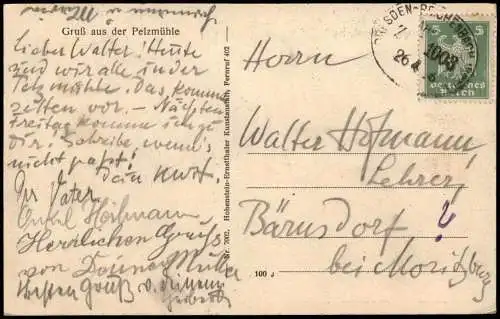 Gruß aus der Pelzmühle
Lieber Walter! Heute
sind wir alle in der
Pelzmühle. Das kommt
selten vor. – Nächsten
Freitag komme ich zu
Dir! Schreibe, wenn's
nicht paßt!
Dein Kurt.
Ihr Vater
Onkel Hofmann
Herzlichen Gruß
von Deiner Mutter
Besten Gruß v. Deinem
Hohenstein-Ernstthaler Kunstanstalt, Fernruf 402
Nr. 7002.
DRESDEN-REICHENBACH
5 5
Deutsches
Reich
Herrn
Walter Hofmann,
Lehrer,
Bärnsdorf
bei Moritzburg
?
100 J